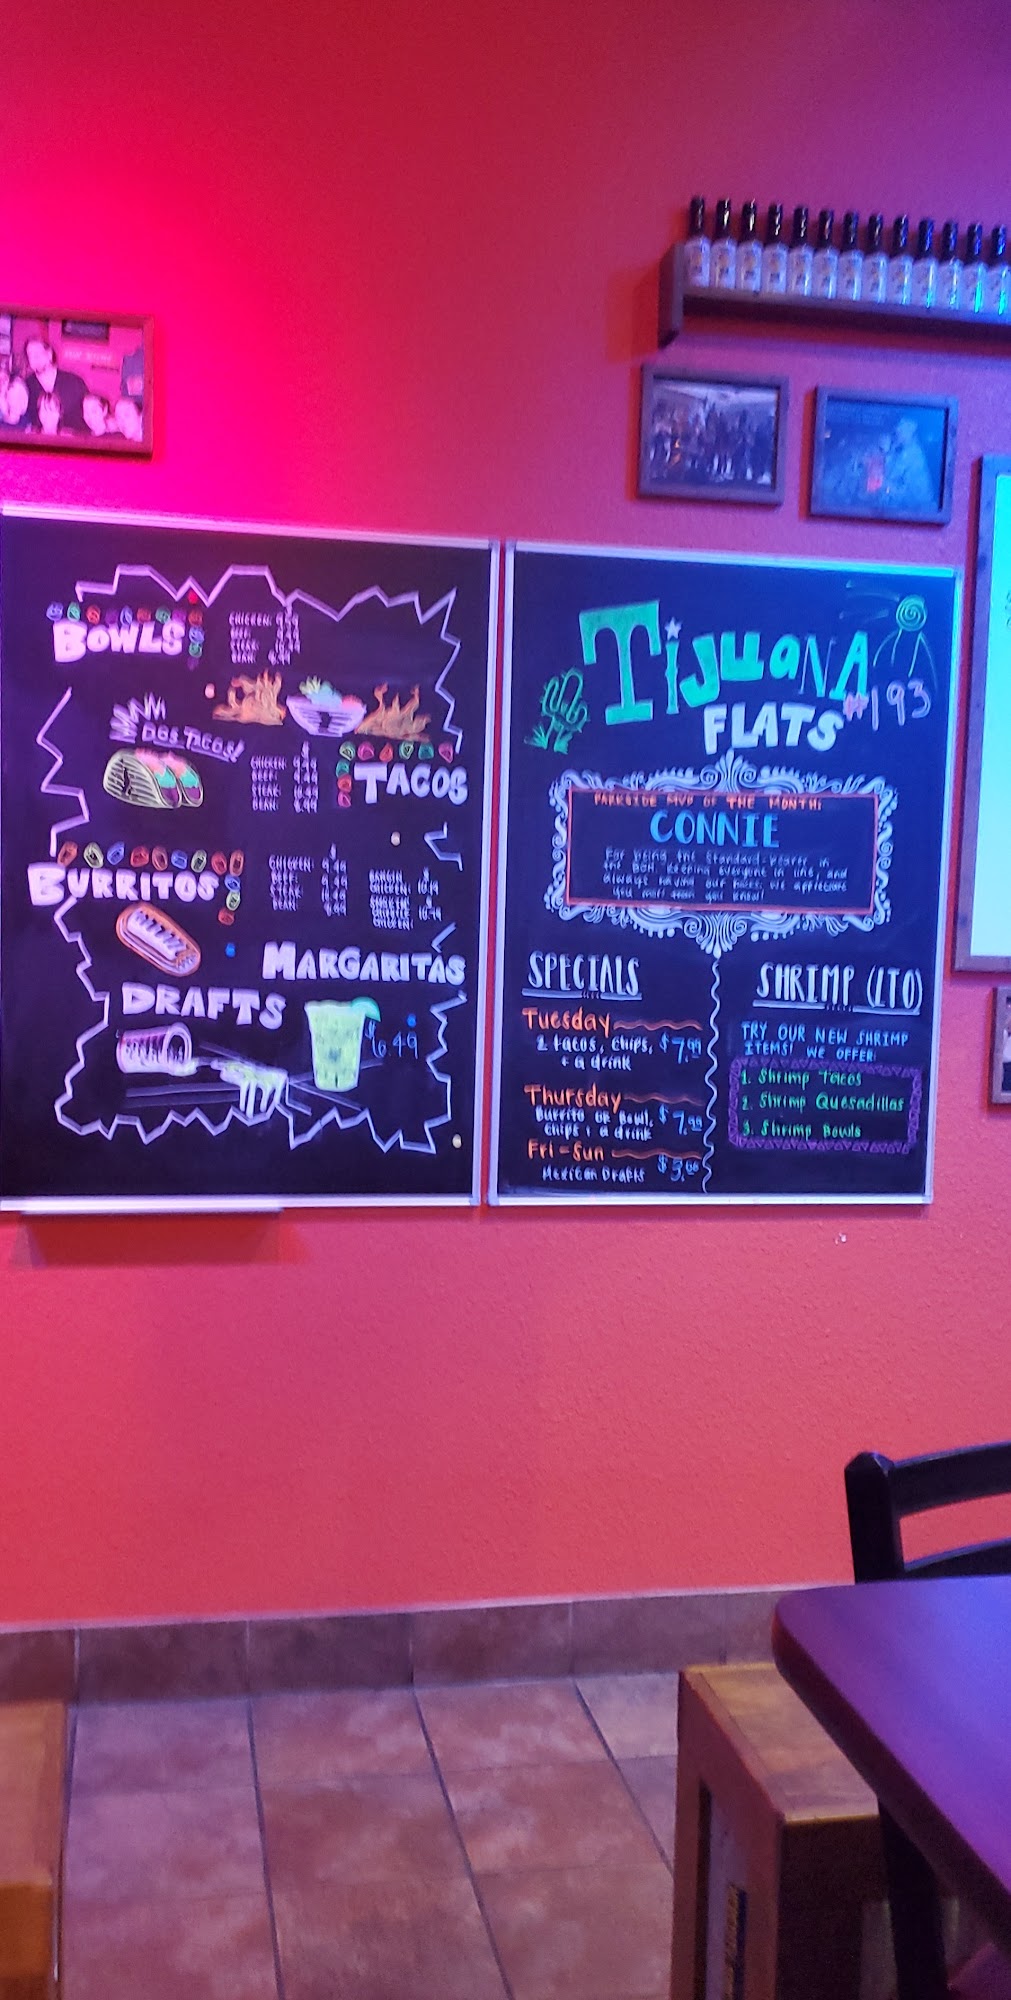 BOWLS
CHICKEN:
BEEF:
STEAK:
BEAN:
DOS TACOS!
TACOS
CHICKEN:
BEEF:
STEAK:
BEAN:
BURRITOS
CHICKEN:
BEEF:
STEAK:
BEAN:
CHICKEN: 10.19
CHIPOTLE
CHICKEN:
MARGARITAS
DRAFTS
$6.49
TIJUANA
FLATS #193
PARKSIDE MVP OF THE MONTH:
CONNIE
For being the standard-bearer in
the BOH, keeping everyone in line, and
always having our backs. We appreciate
you more than you know!
SPECIALS
Tuesday
2 tacos, chips, $7.99
+ a drink
Thursday
Burrito or Bowl, $7.99
chips + a drink
Fri-Sun
Mexican Drafts $3.00
SHRIMP (ITO)
TRY OUR NEW SHRIMP
ITEMS! WE OFFER:
1. Shrimp Tacos
2. Shrimp Quesadillas
3. Shrimp Bowls